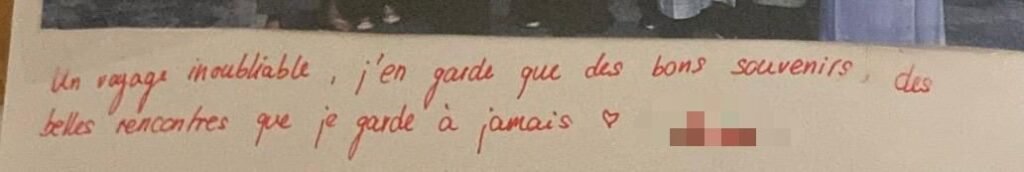 Un voyage inoubliable, j'en garde que des bons souvenirs, des
belles rencontres que je garde à jamais ♡